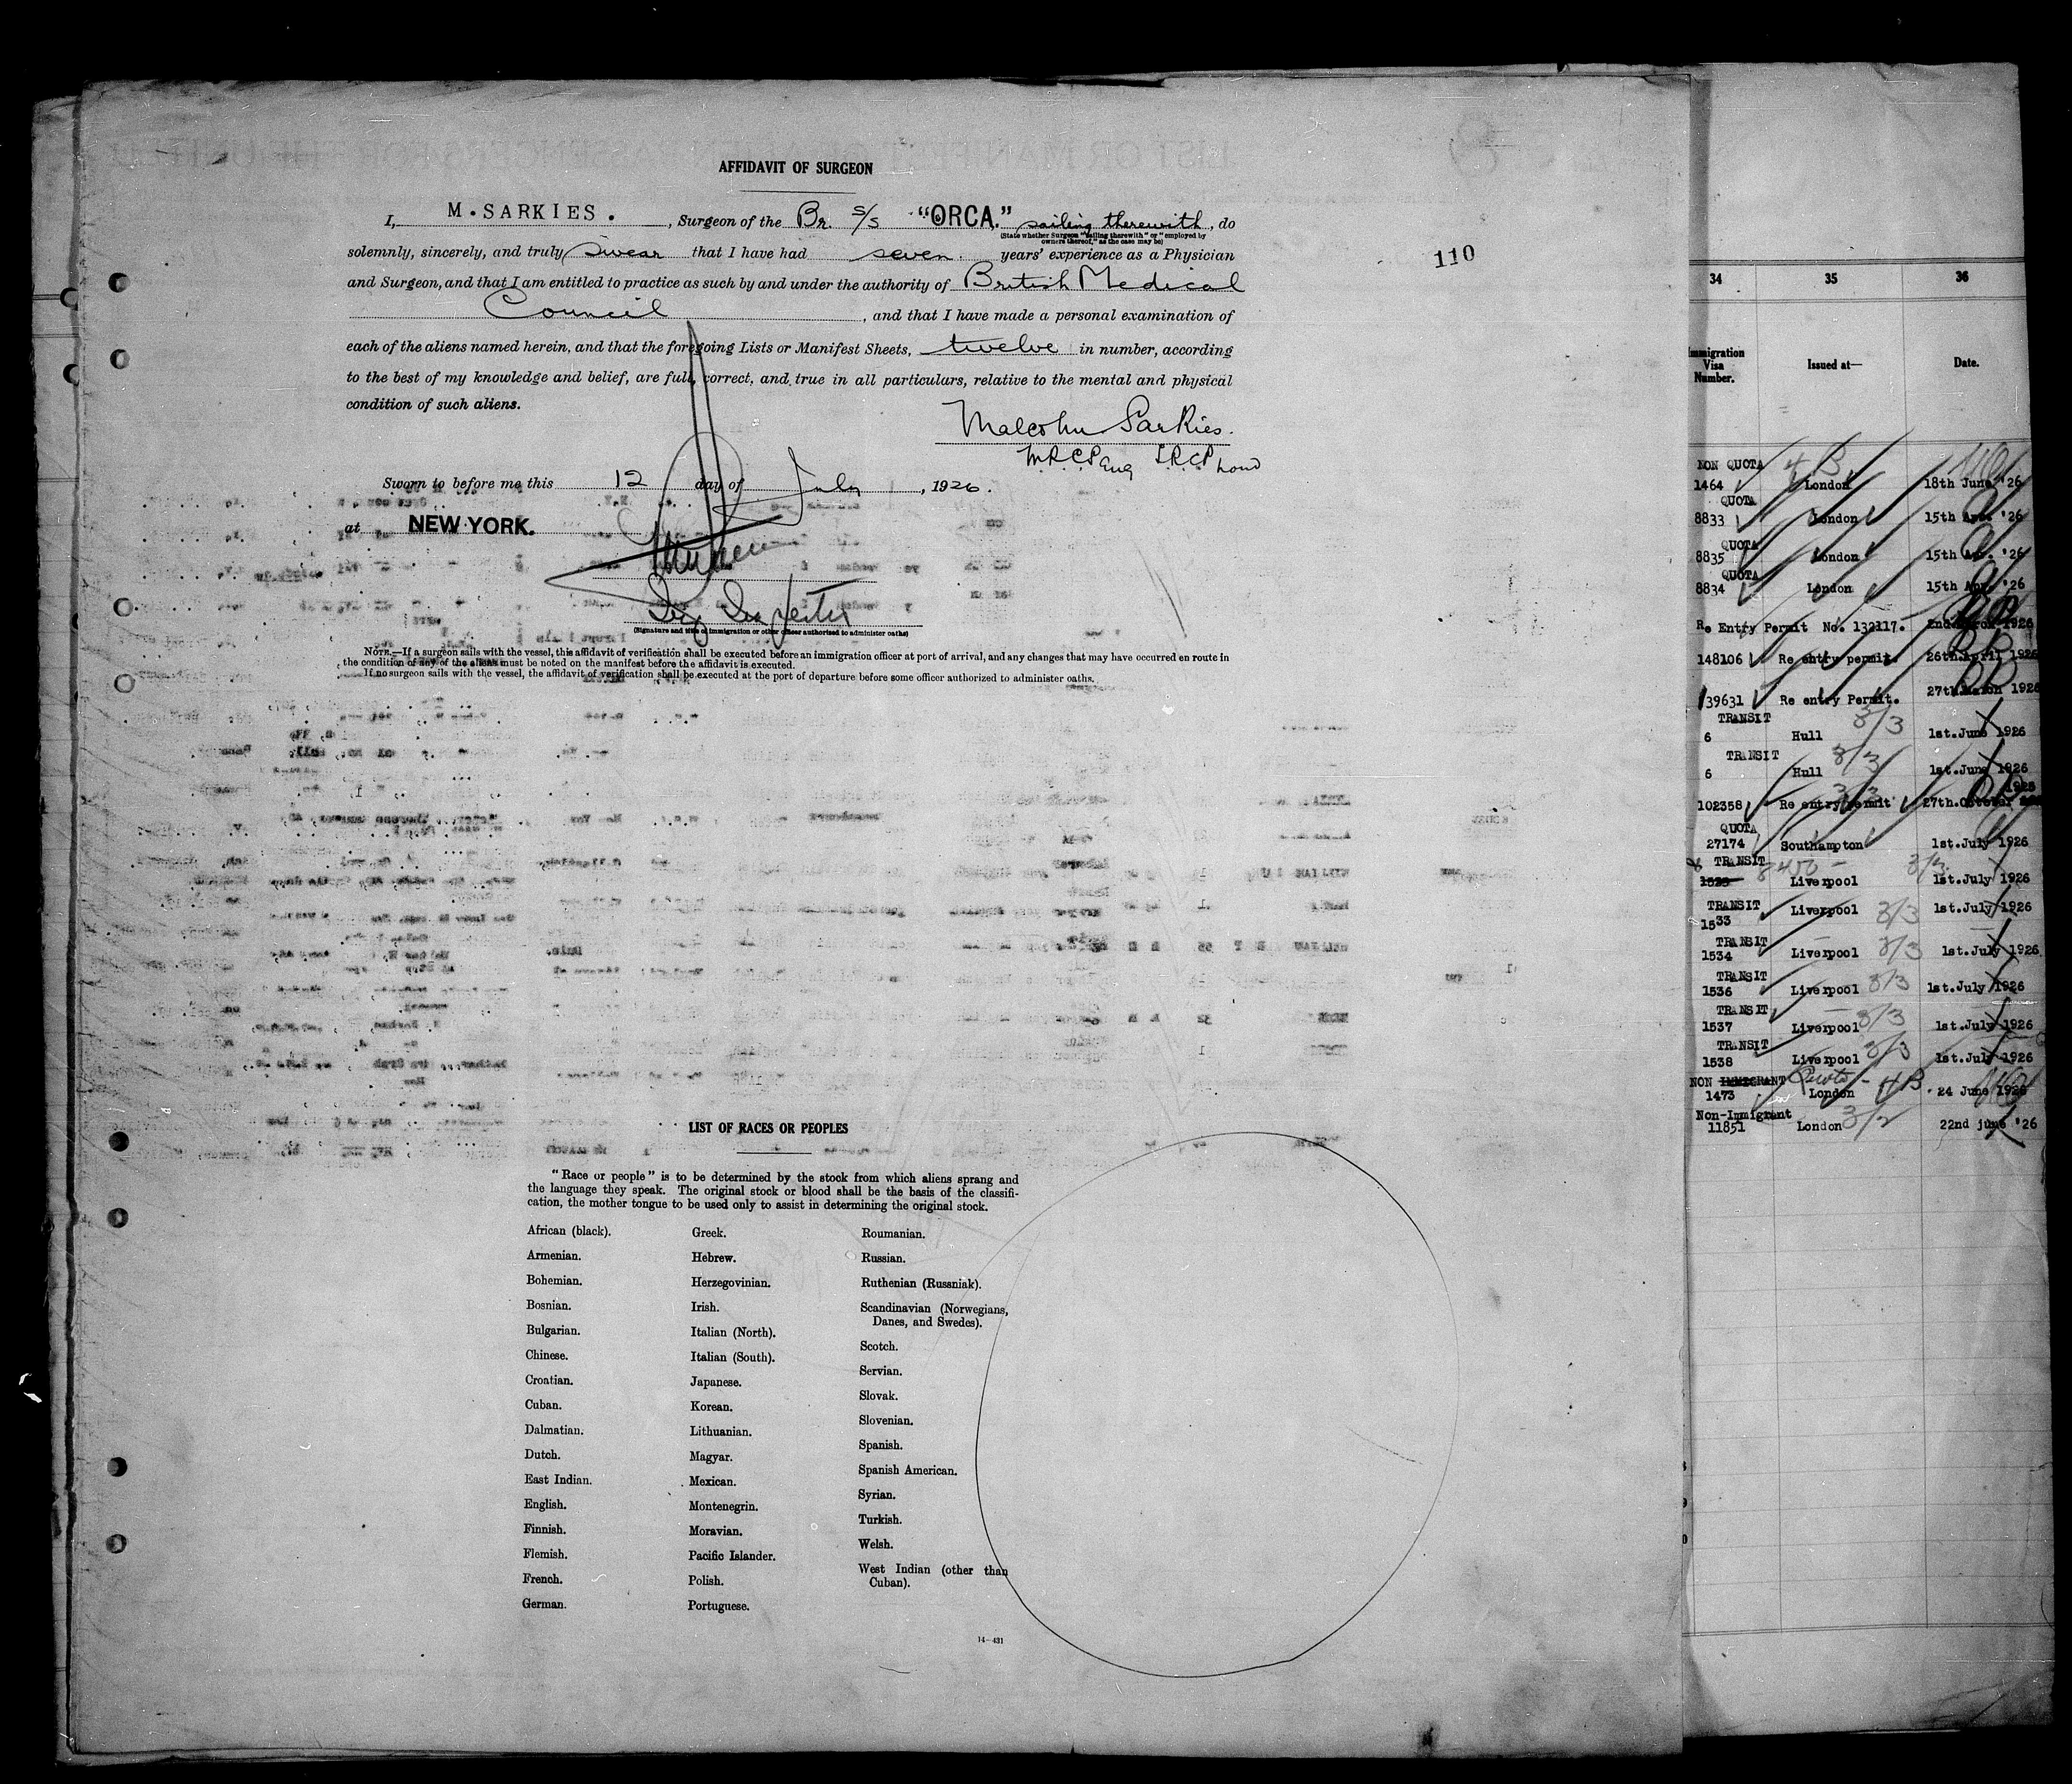 AFFIDAVIT OF SURGEON
I, M. SARKIES. , Surgeon of the Br. S/S "ORCA." sailing therewith, do
(State whether Surgeon "sailing therewith" or "employed by
owners thereof," as the case may be)
solemnly, sincerely, and truly swear that I have had seven years' experience as a Physician
and Surgeon, and that I am entitled to practice as such by and under the authority of British Medical
Council , and that I have made a personal examination of
each of the aliens named herein, and that the foregoing Lists or Manifest Sheets, twelve in number, according
to the best of my knowledge and belief, are full, correct, and true in all particulars, relative to the mental and physical
condition of such aliens.
Malcolm Sarkies.
M.R.C.S Eng L.R.C.P Lond
Sworn to before me this 12 day of July , 1926.
at NEW YORK.
(Signature and title of immigration or other officer authorized to administer oaths)
NOTE.—If a surgeon sails with the vessel, this affidavit of verification shall be executed before an immigration officer at port of arrival, and any changes that may have occurred en route in
the condition of any of the aliens must be noted on the manifest before the affidavit is executed.
If no surgeon sails with the vessel, the affidavit of verification shall be executed at the port of departure before some officer authorized to administer oaths.
110
LIST OF RACES OR PEOPLES
"Race or people" is to be determined by the stock from which aliens sprang and
the language they speak. The original stock or blood shall be the basis of the classifi-
cation, the mother tongue to be used only to assist in determining the original stock.
African (black).
Armenian.
Bohemian.
Bosnian.
Bulgarian.
Chinese.
Croatian.
Cuban.
Dalmatian.
Dutch.
East Indian.
English.
Finnish.
Flemish.
French.
German.
Greek.
Hebrew.
Herzegovinian.
Irish.
Italian (North).
Italian (South).
Japanese.
Korean.
Lithuanian.
Magyar.
Mexican.
Montenegrin.
Moravian.
Pacific Islander.
Polish.
Portuguese.
Roumanian.
Russian.
Ruthenian (Russniak).
Scandinavian (Norwegians,
Danes, and Swedes).
Scotch.
Servian.
Slovak.
Slovenian.
Spanish.
Spanish American.
Syrian.
Turkish.
Welsh.
West Indian (other than
Cuban).
14—431
34 35 36
Immigration
Visa
Number.
Issued at—
Date.
NON QUOTA 4 B
1464 London 18th June '26
QUOTA
8833 London 15th Apr. '26
QUOTA
8835 London 15th Apr. '26
QUOTA
8834 London 15th Apr. '26
Re Entry Permit No. 132117. 2nd. March 1926
148106 Re entry permit. 26th. April 1926
39631 Re entry Permit. 27th. March 1926
TRANSIT 3/3
6 Hull 1st. June 1926
TRANSIT 3/3
6 Hull 1st. June 1926
102358 Re entry permit 27th. October 1925
QUOTA
27174 Southampton 1st. July 1926
TRANSIT 3/3
Liverpool 1st. July 1926
TRANSIT
1533 Liverpool 3/3 1st. July 1926
TRANSIT
1534 Liverpool 3/3 1st. July 1926
TRANSIT
1536 Liverpool 3/3 1st. July 1926
TRANSIT
1537 Liverpool 3/3 1st. July 1926
TRANSIT
1538 Liverpool 3/3 1st. July 1926
NON IMMIGRANT Quota - 4 B
1473 London 24 June 1926
Non-Immigrant
11851 London 3/2 22nd june '26